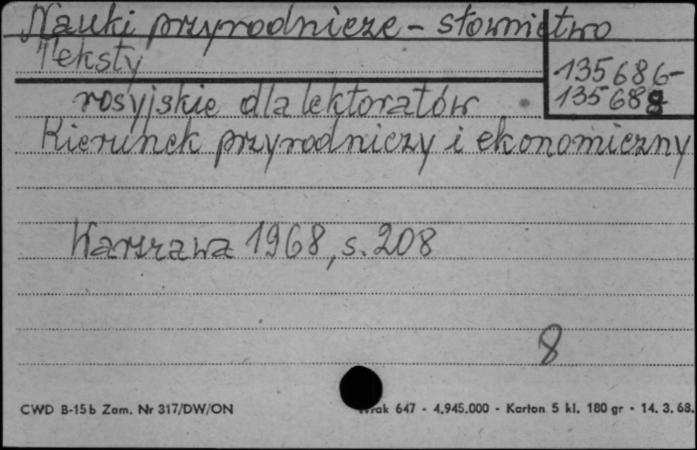 Nauki przyrodnicze - słownictwo
Teksty
135686-
135688
rosyjskie dla lektoratów
Kierunek przyrodniczy i ekonomiczny
Warszawa 1968, s. 208
8
CWD B-15b Zam. Nr 317/DW/ON
647 - 4.945.000 - Karton 5 kl. 180 gr - 14. 3. 68.